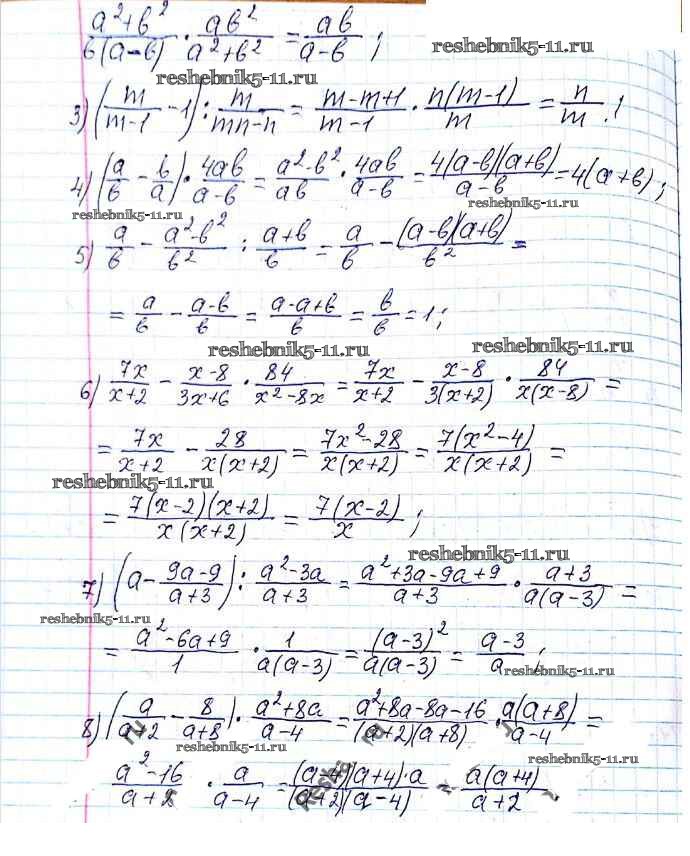 (a²+b²)/(b(a-b)) · ab²/(a²+b²) = ab/(a-b) ;
reshebnik5-11.ru
reshebnik5-11.ru
3) (m/(m-1) - 1) : m/(mn-n) = (m-m+1)/(m-1) · n(m-1)/m = n/m ;
4) (a/b - b/a) · 4ab/(a-b) = (a²-b²)/ab · 4ab/(a-b) = 4(a-b)(a+b)/(a-b) = 4(a+b) ;
reshebnik5-11.ru
reshebnik5-11.ru
5) a/b - (a²-b²)/b² : (a+b)/b = a/b - (a-b)(a+b)/b² =
= a/b - (a-b)/b = (a-a+b)/b = b/b = 1 ;
reshebnik5-11.ru
reshebnik5-11.ru
6) 7x/(x+2) - (x-8)/(3x+6) · 84/(x²-8x) = 7x/(x+2) - (x-8)/(3(x+2)) · 84/(x(x-8)) =
= 7x/(x+2) - 28/(x(x+2)) = (7x²-28)/(x(x+2)) = 7(x²-4)/(x(x+2)) =
reshebnik5-11.ru
= 7(x-2)(x+2)/(x(x+2)) = 7(x-2)/x ;
reshebnik5-11.ru
7) (a - (9a-9)/(a+3)) : (a²-3a)/(a+3) = (a²+3a-9a+9)/(a+3) · (a+3)/(a(a-3)) =
reshebnik5-11.ru
= (a²-6a+9)/1 · 1/(a(a-3)) = (a-3)²/(a(a-3)) = (a-3)/a ;
reshebnik5-11.ru
8) (a/(a+2) - 8/(a+8)) · (a²+8a)/(a-4) = (a²+8a-8a-16)/((a+2)(a+8)) · a(a+8)/(a-4) =
reshebnik5-11.ru
reshebnik5-11.ru
(a²-16)/(a+2) · a/(a-4) = (a-4)(a+4)·a/((a+2)(a-4)) = a(a+4)/(a+2)